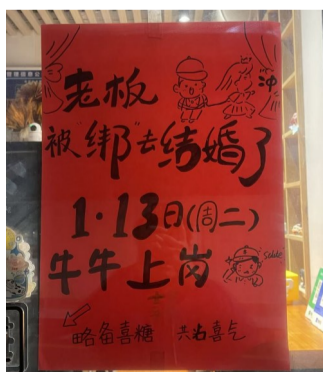 老板
"冲"
被"绑"去结婚了
1·13日(周二)
牛牛上岗
Salute
略备喜糖 共沾喜气